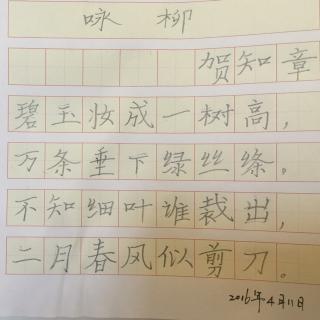 咏柳
贺知章
碧玉妆成一树高，
万条垂下绿丝绦。
不知细叶谁裁出，
二月春风似剪刀。
2016年4月11日